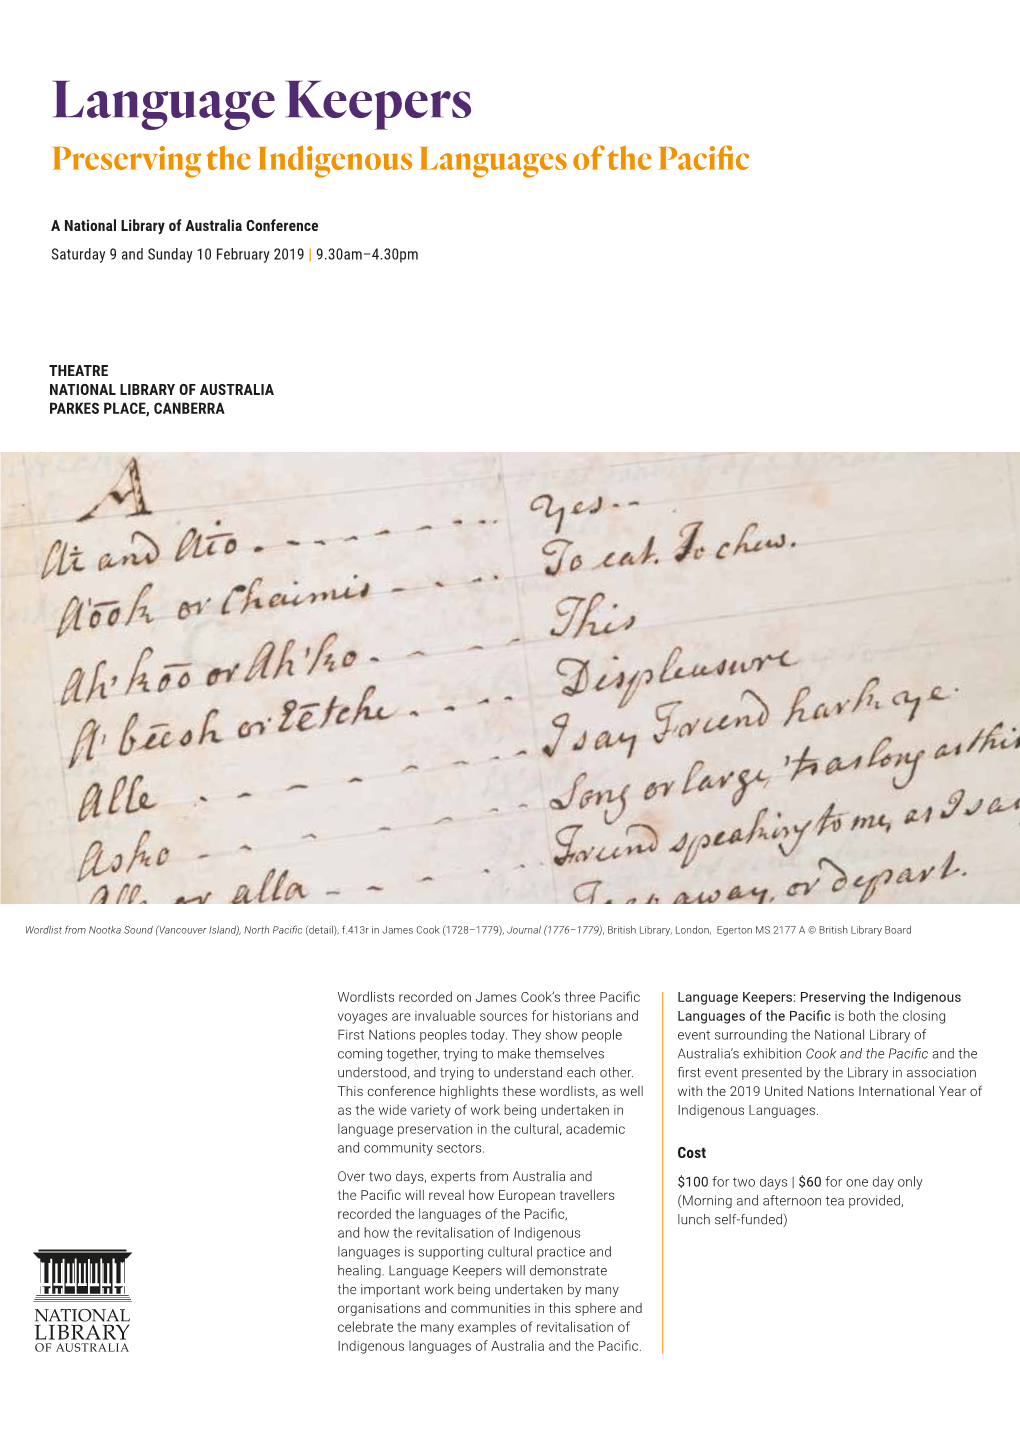 Language Keepers
Preserving the Indigenous Languages of the Pacific
A National Library of Australia Conference
Saturday 9 and Sunday 10 February 2019 | 9.30am–4.30pm
THEATRE
NATIONAL LIBRARY OF AUSTRALIA
PARKES PLACE, CANBERRA
A
Ai and Aīo . - - - - - - - Yes - -
A'ōōk or Chaimis - - - - To eat. To chew.
Ah'kōō or Ah'ko - - - - - This
A'bēēsh or Eētche - - - - Displeasure
Alle - - - - - - - - I say Friend hark ye.
Asko - - - - - - - Long or large, 'tas long as thi
or alla - - - - Friend speaking to me, as I say
away, or depart.
Wordlist from Nootka Sound (Vancouver Island), North Pacific (detail), f.413r in James Cook (1728–1779), Journal (1776–1779), British Library, London, Egerton MS 2177 A © British Library Board
Wordlists recorded on James Cook's three Pacific
voyages are invaluable sources for historians and
First Nations peoples today. They show people
coming together, trying to make themselves
understood, and trying to understand each other.
This conference highlights these wordlists, as well
as the wide variety of work being undertaken in
language preservation in the cultural, academic
and community sectors.
Over two days, experts from Australia and
the Pacific will reveal how European travellers
recorded the languages of the Pacific,
and how the revitalisation of Indigenous
languages is supporting cultural practice and
healing. Language Keepers will demonstrate
the important work being undertaken by many
organisations and communities in this sphere and
celebrate the many examples of revitalisation of
Indigenous languages of Australia and the Pacific.
Language Keepers: Preserving the Indigenous
Languages of the Pacific is both the closing
event surrounding the National Library of
Australia's exhibition Cook and the Pacific and the
first event presented by the Library in association
with the 2019 United Nations International Year of
Indigenous Languages.
Cost
$100 for two days | $60 for one day only
(Morning and afternoon tea provided,
lunch self-funded)
NATIONAL
LIBRARY
OF AUSTRALIA